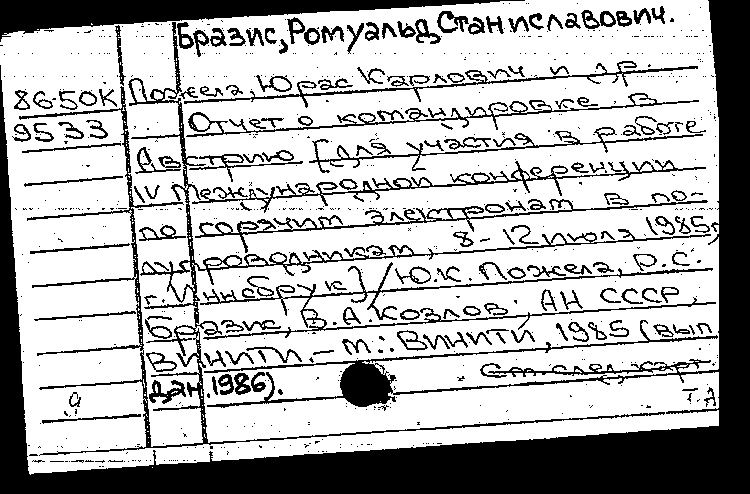 Бразис, Ромуальд Станиславович.
86-50К Пожела, Юрас Карлович и др.
9533 Отчет о командировке в
Австрию [для участия в работе
IV Международной конференции
по горячим электронам в по-
лупроводникам, 8-12 июля 1985,
г. Иннсбрук] / Ю.К. Пожела, Р.С.
Бразис, В.А. Козлов; АН СССР,
ВИНИТИ. - М.: ВИНИТИ, 1985 (вып.
дан. 1986).
См. след. карт.